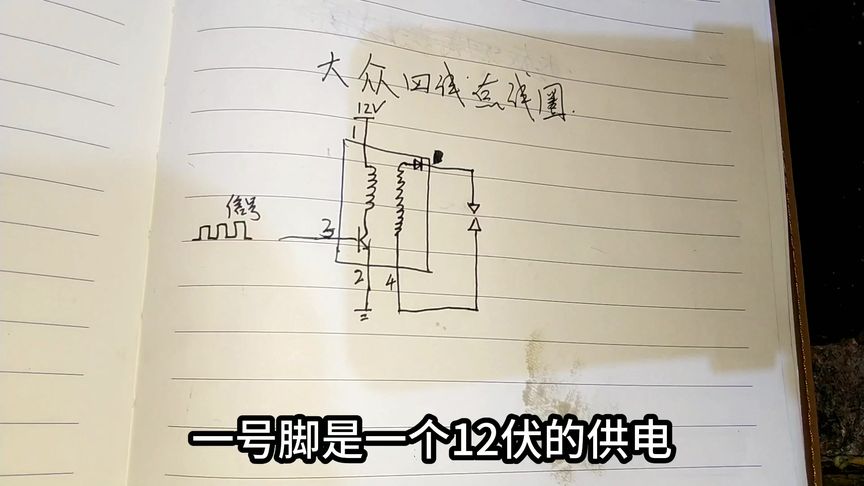 大众四线点线圈.
12V
1
信号
3
2
4
一号脚是一个12伏的供电